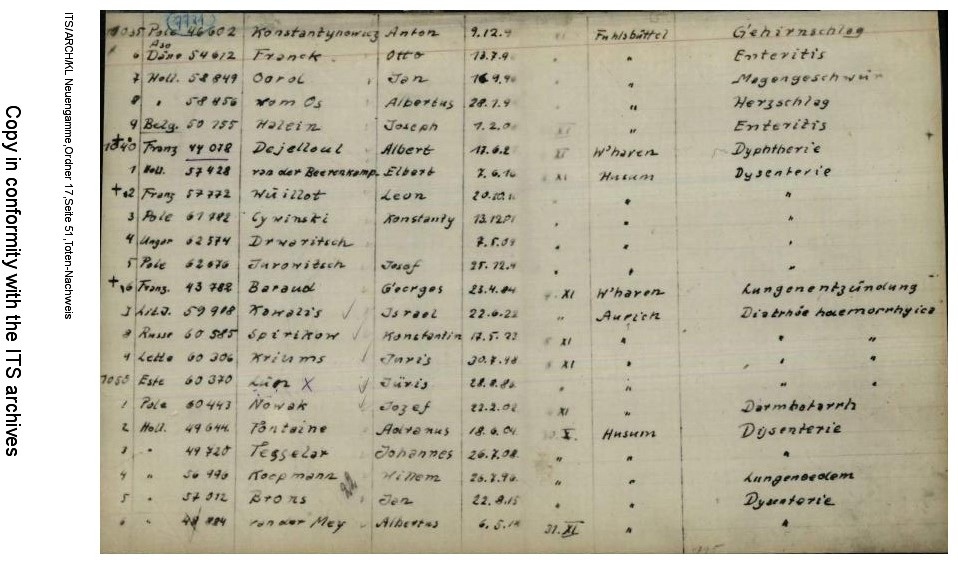 Copy in conformity with the ITS archives
ITS/ARCH/KL Neuengamme,Ordner 17,Seite 51,Toten-Nachweis
Pole 46602 Konstantynowicz Anton 9.12. Fuhlsbüttel Gehirnschlag
6 Däne 54612 Franck Otto " Enteritis
7 Holl. 58849 Jan " Magengeschwür
8 " 58456 Albertus 28.1.9 " Herzschlag
9 Belg. 50755 Halein Joseph 1.2.0 XI " Enteritis
+ 1040 Franz 44078 Dejelloul Albert XI W'haven Dyphtherie
1 Holl. 57428 van der Beerenkamp. Elbert XI Husum Dysenterie
+ 2 Franz 57772 Wuillot Leon " "
3 Pole 61782 Cywinski Konstanty "
4 Ungar 62574 Drwaritsch 7.5.09 " "
5 Pole 62676 Jurowitsch Josef 25.12. " "
+ 6 Franz. 43782 Baraud Georges 23.4.84 XI W'haven Lungenentzündung
59918 Kawalis Israel 22.6.22 " Aurich Diatrhöe haemorrhyica
8 Russe 60585 Spirikow Konstantin 17.5. XI " " "
Lette 60306 Kriums Juris 30.7. XI " " "
1050 Este 60370 X Jüris " " "
1 Pole 60443 Nowak Jozef 22.2.02 XI " Darmkatarrh
2 Holl. 49644 Fontaine Adranus 18.6.04 X. Husum Dysenterie
3 " 49720 Teggelar Johannes 26.7.08 " " "
4 " 56996 Koopmann Willem " " Lungenoedem
5 " 57012 Brons Jan 22.8.15 " " Dysenterie
6 " van der Mey Albertus 6.5. 31.XI " "